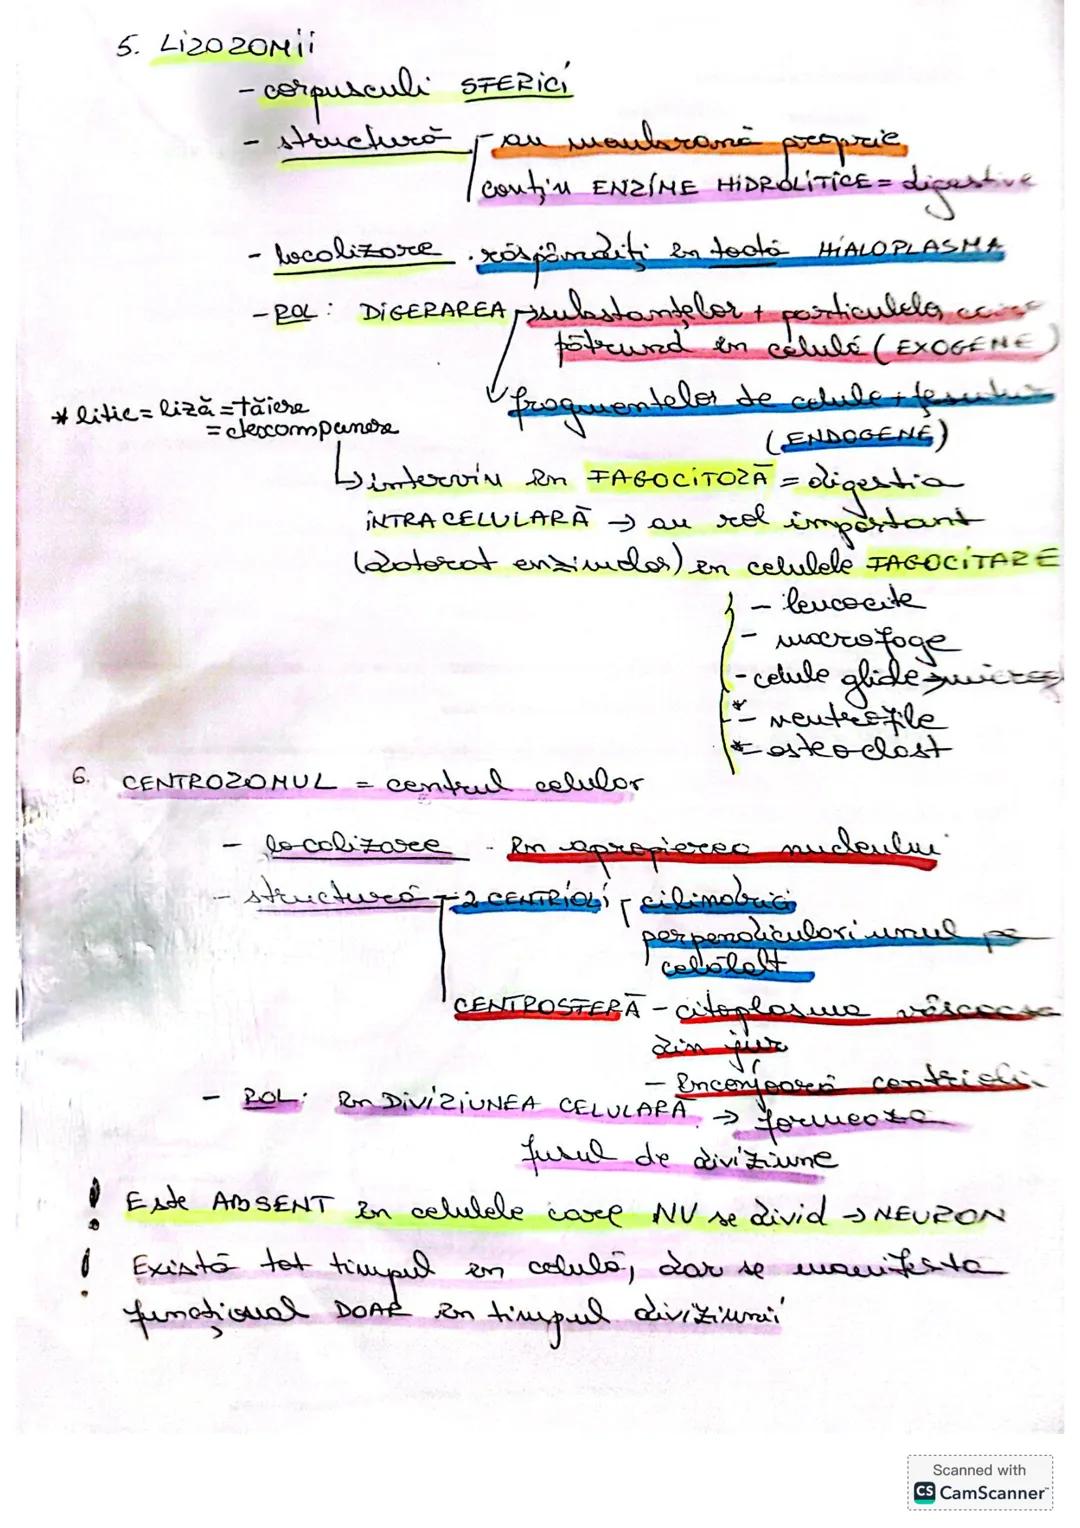 5. LIZOZOMII
- corpusculi SFERICI
- structură - au membrană proprie
conțin ENZIME HIDROLITICE = digestive
- localizare - răspândiți în toată HIALOPLASMA
- ROL: DIGERAREA → substanțelor + particulelor care
pătrund în celulă (EXOGENE)
fragmentelor de celule + țesuturi
(ENDOGENE)
* litic = liză = tăiere
= descompunere
↳ intervin în FAGOCITOZĂ = digestia
INTRACELULARĂ → au rol important
(datorat enzimelor) în celulele FAGOCITARE
- leucocite
- macrofage
- celule gliale →
* - neutrofile
* - osteoclast
6. CENTROZOMUL = centrul celular
- localizare - în apropierea nucleului
- structură - 2 CENTRIOLI - cilindrici
perpendiculari unul pe
celălalt
CENTROSFERĂ - citoplasma vâscoasă
din jur
- înconjoară centriolii
- ROL: în DIVIZIUNEA CELULARĂ → formează
fusul de diviziune
! Este ABSENT în celulele care NU se divid → NEURON
! Există tot timpul în celulă, dar se manifestă
funcțional DOAR în timpul diviziunii
Scanned with
CS CamScanner